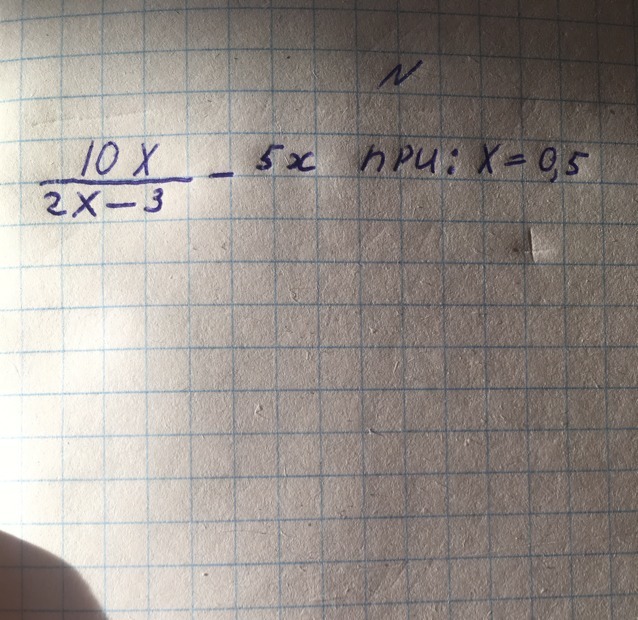 N
10x
—— - 5x при: x = 0,5
2x - 3